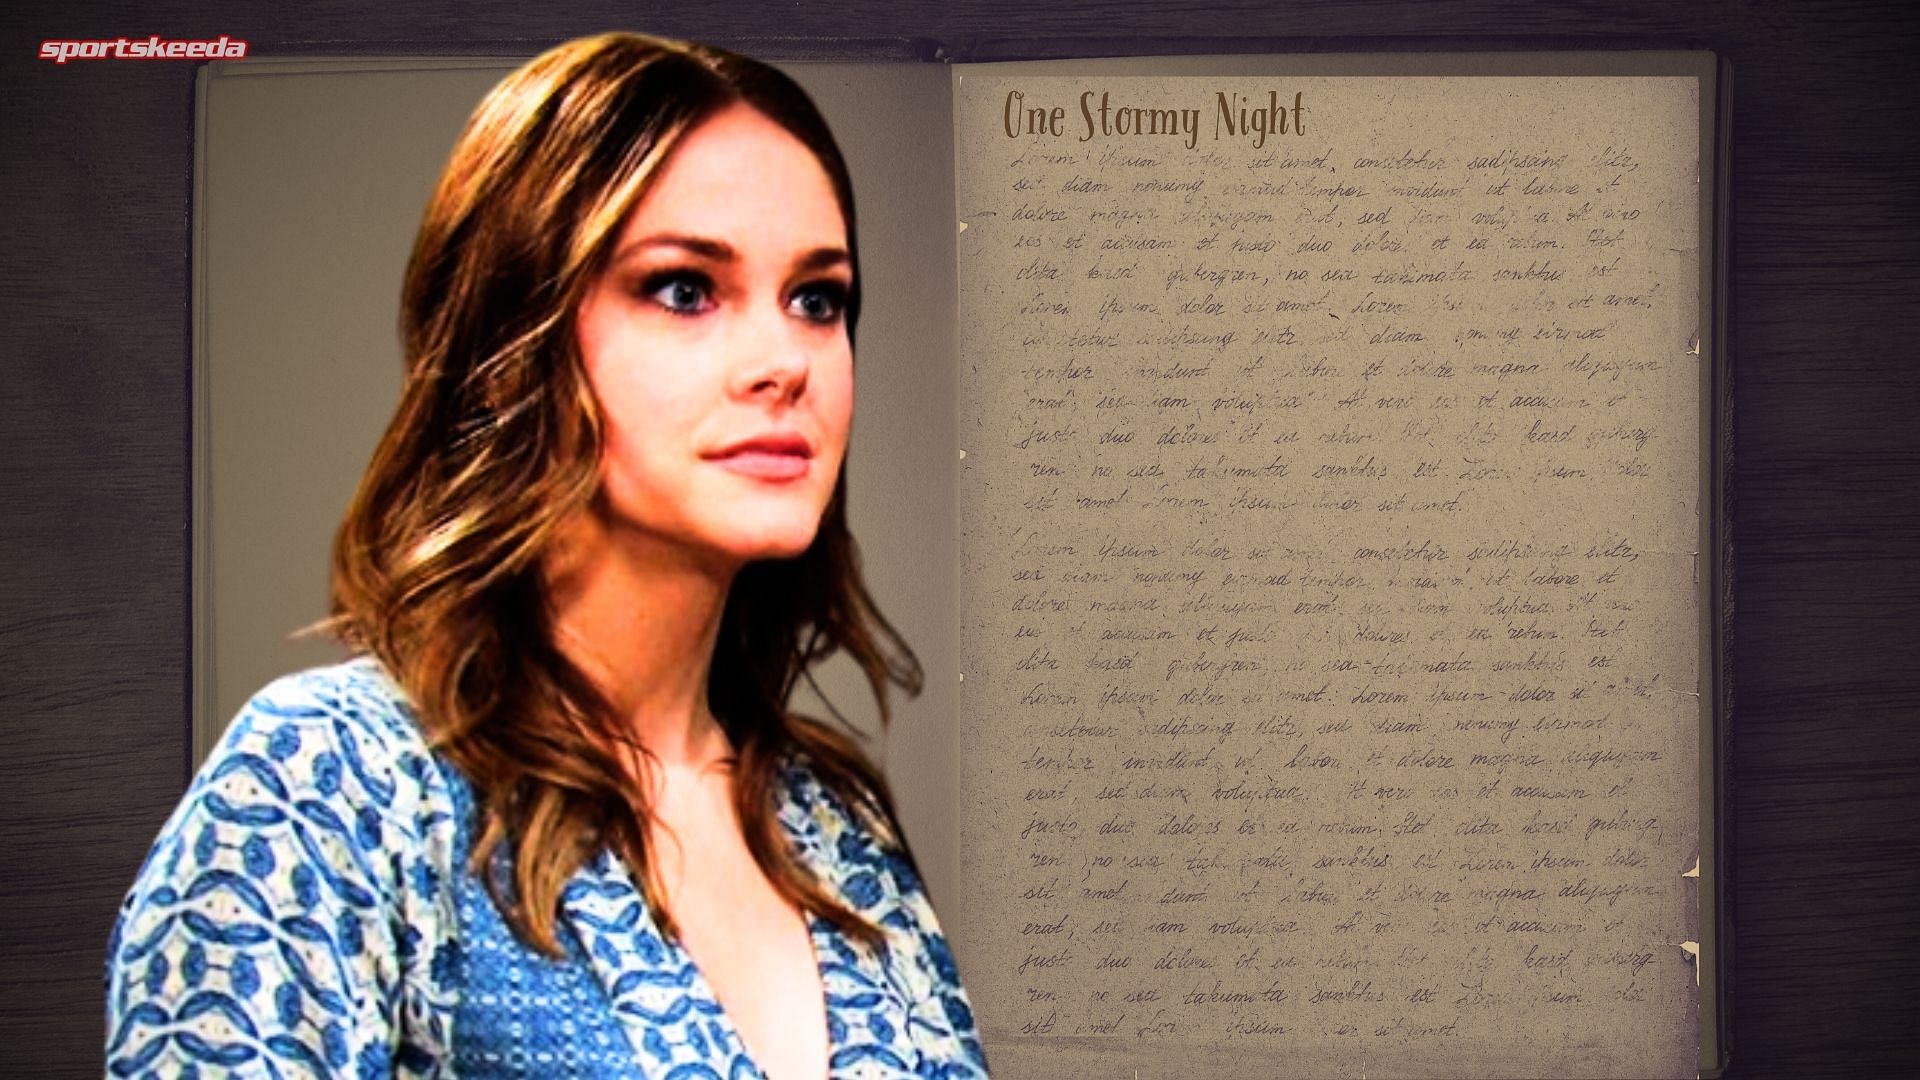 sportskeeda
One Stormy Night
Lorem ipsum sit amet, consetetur sadipscing elitr,
sed diam nonumy tempor invidunt ut labore et
dolore magna sed At vero
eos et accusam et justo duo dolores et ea rebum. Stet
clita kasd gubergren, no sea takimata sanktus est
Lorem ipsum dolor sit amet. Lorem sit amet,
sadipscing elitr, sed diam eirmod
tempor invidunt ut labore et dolore magna aliquyam
erat, sed diam voluptua At vero eos et accusam et
justo duo dolores et ea rebum kasd guberg
ren no sea takimata sanktus est Lorem ipsum dolor
sit amet Lorem ipsum dolor sit amet.
Lorem ipsum dolor sit amet consetetur sadipscing elitr,
sed diam nonumy eirmod tempor ut labore et
dolore magna aliquyam erat sed voluptua
eos et accusam et justo dolores et ea rebum. Stet
clita kasd gubergren no sea takimata sanktus est
Lorem ipsum dolor sit amet. Lorem ipsum dolor sit
sadipscing elitr, sed diam nonumy eirmod
tempor invidunt ut labore et dolore magna aliquyam
erat, sed diam voluptua. At vero eos et accusam et
justo duo dolores et ea rebum. Stet clita kasd guberg
ren, no sea sanktus est Lorem ipsum dolor
sit amet ut labore et dolore magna aliquyam
erat, sed diam voluptua At vero et accusam et
justo duo dolores et ea rebum kasd guberg
ren no sea takimata sanktus est Lorem ipsum dolor
sit amet ipsum sit amet.